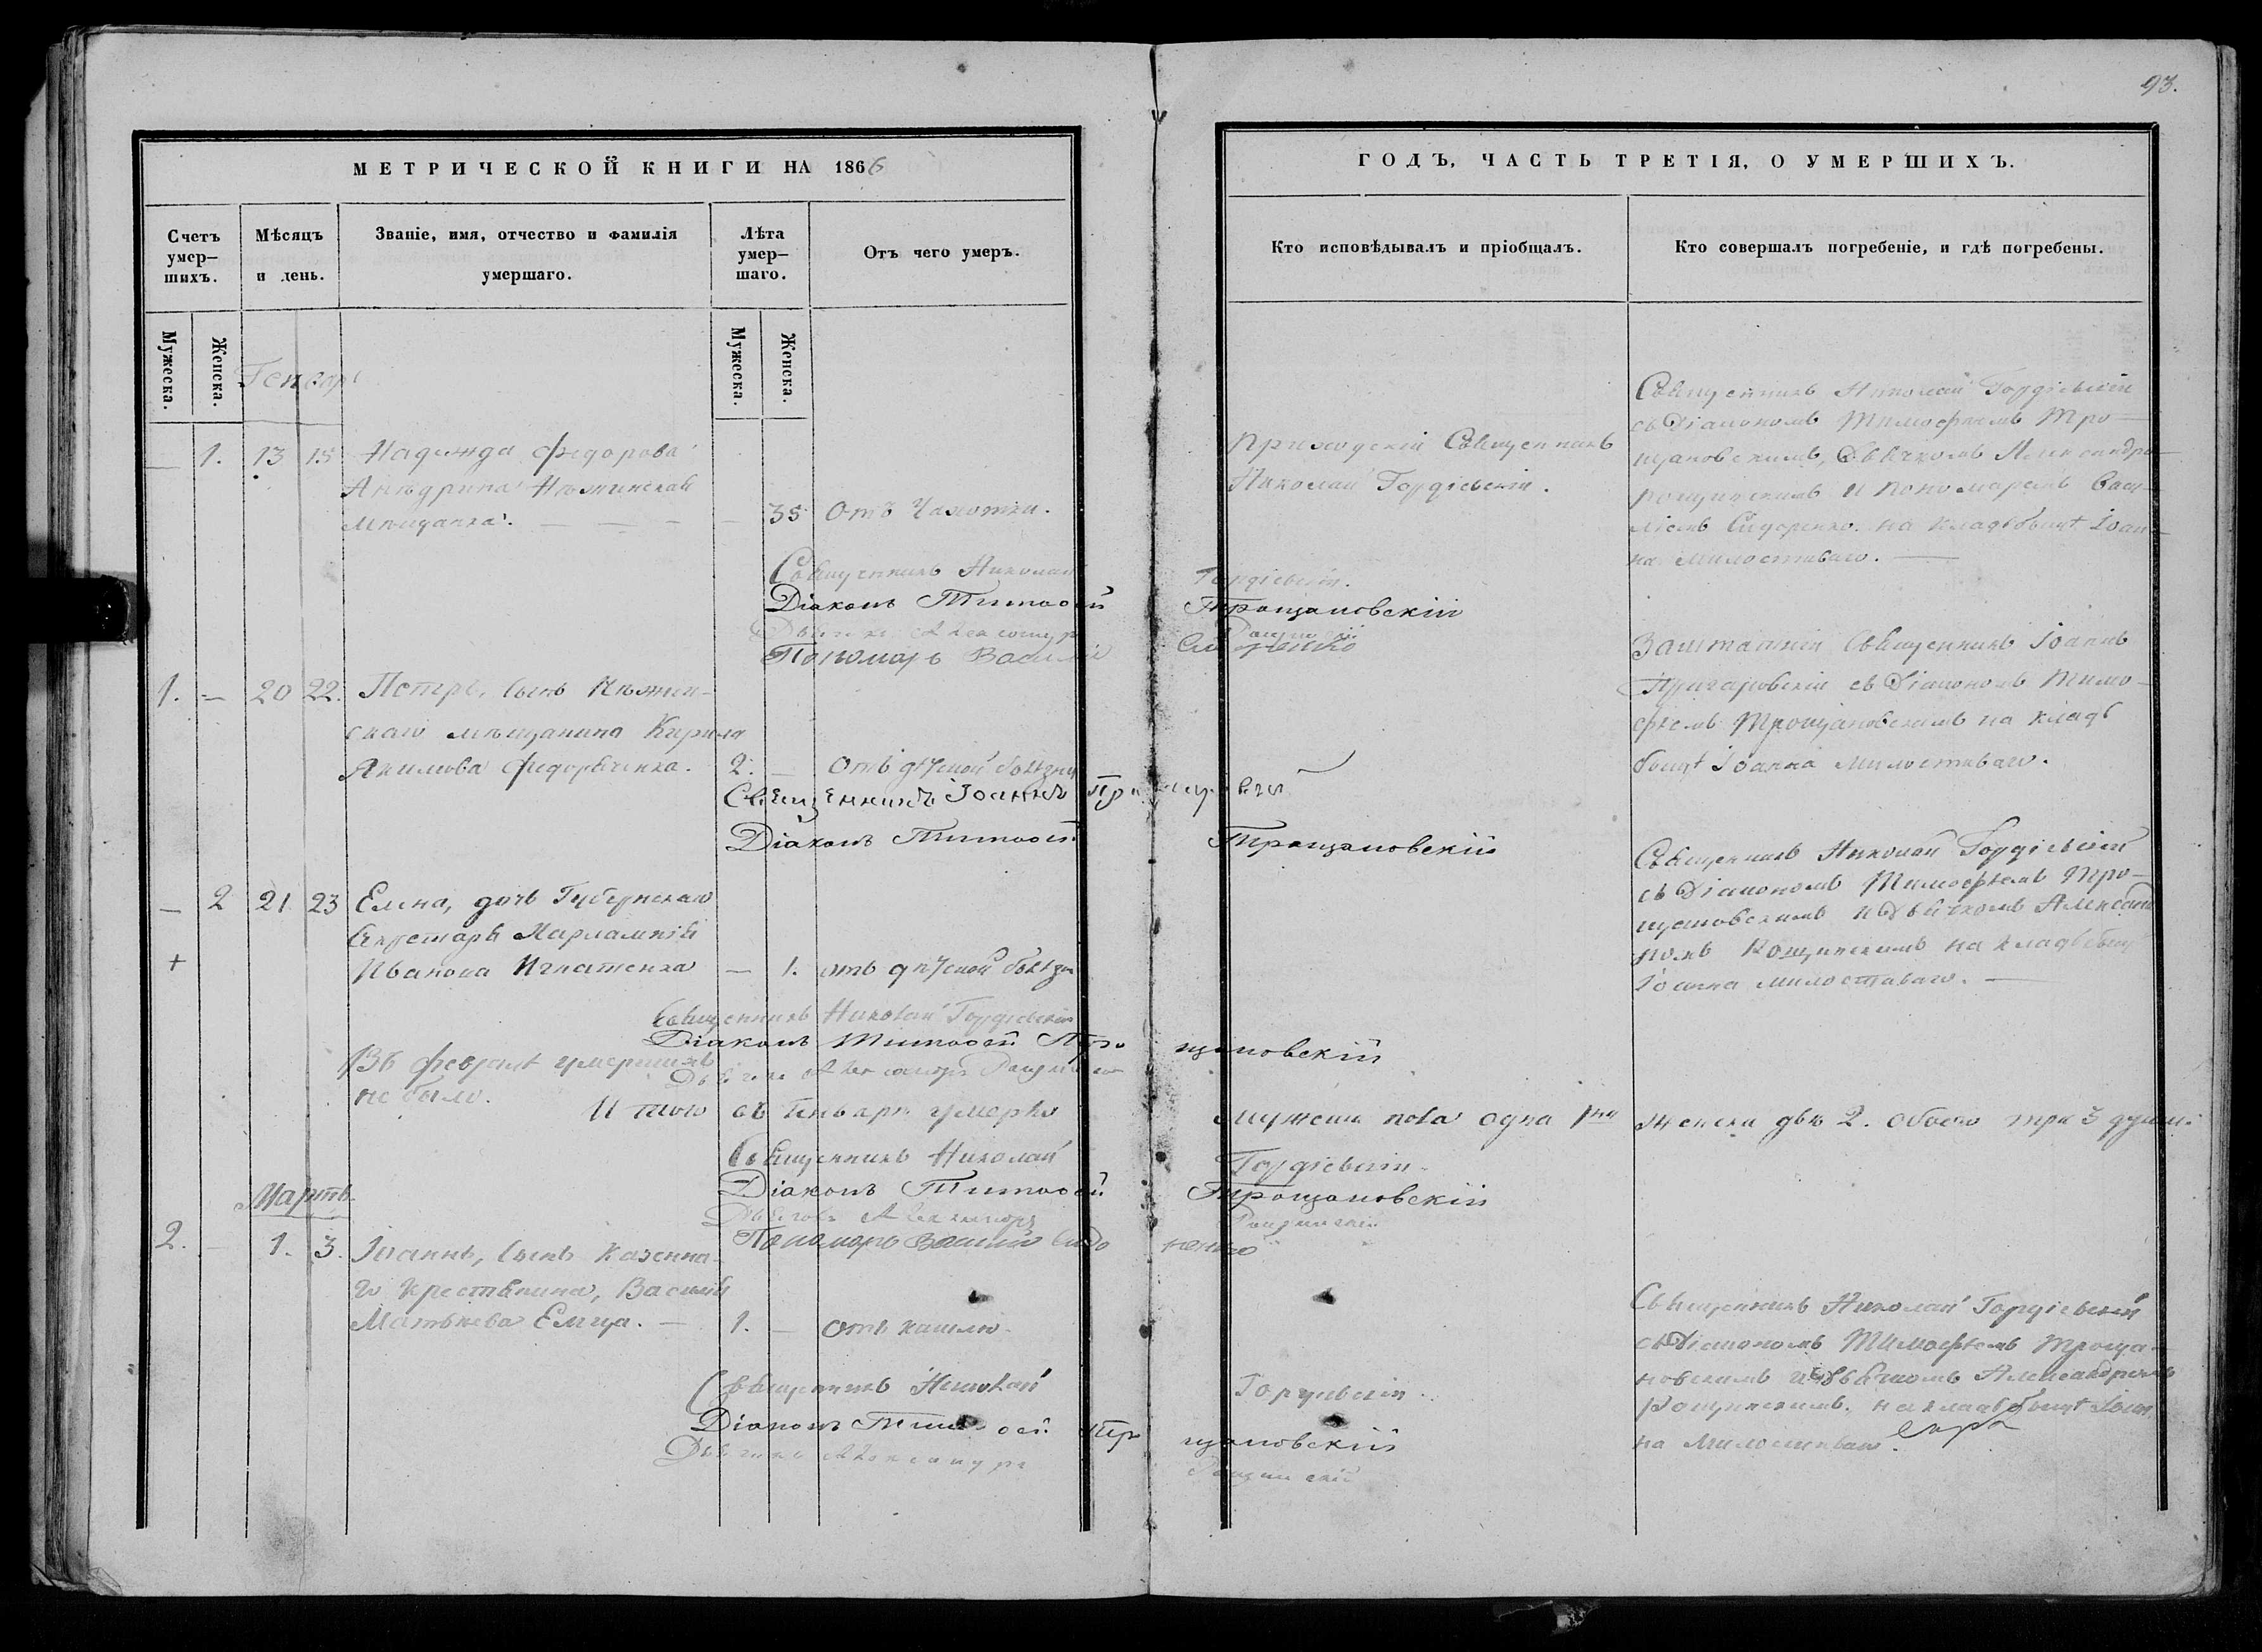 93.
МЕТРИЧЕСКОЙ КНИГИ НА 1866
ГОДЪ, ЧАСТЬ ТРЕТІЯ, О УМЕРШИХЪ.
Счетъ умер-шихъ.
Мѣсяцъ и день.
Званіе, имя, отчество и фамилія умершаго.
Лѣта умер-шаго.
Отъ чего умеръ.
Кто исповѣдывалъ и пріобщалъ.
Кто совершалъ погребеніе, и гдѣ погребены.
Мужеска.
Женска.
Мужеска.
Женска.
Генварь
— 1. 13 15 Надежда Федорова
Нѣжинская
мѣщанка. — 35 Отъ Чахотки.
Приходскій Священникъ
Николай Гордіевскій.
Священникъ Николай Гордіевскій
съ Діакономъ Тимофеемъ Тро-
щановскимъ, Дьячкомъ Александро
Рощинскимъ и Пономаремъ Васи-
ліемъ Сидоренко. на кладбищѣ Іоан-
на Милостиваго.
Священникъ Николай Гордіевскій.
Діаконъ Тимофей Трощановскій
Дьячекъ Александръ Рощинскій
Пономарь Василій Сидоренко
1. — 20 22. Петръ, сынъ Нѣжин-
скаго мѣщанина Кирила
Якимова Федорченка. 2. — Отъ дѣтской болѣзни
Заштатній Священникъ Іоаннъ
съ Діакономъ Тимо-
феемъ Трощановскимъ на клад-
бищѣ Іоанна Милостиваго.
Священникъ Іоаннъ
Діаконъ Тимофей Трощановскій
— 2 21 23 Елена, дочь Губернскаго
Секретаря Харлампія
+
Иванова Игнатенка — 1. отъ дѣтской болѣзни
Священникъ Николай Гордіевскій
съ Діакономъ Тимофеемъ Тро-
щановскимъ и Дьячкомъ Александ
ромъ Рощинскимъ на кладбищѣ
Іоанна Милостиваго.
Священникъ Николай Гордіевскій
Діаконъ Тимофей Трощановскій
Дьячекъ Александръ Рощинскій
Въ Февралѣ умершихъ
не было.
Итого въ Генварѣ умерло мужеска пола одна 1 женска двѣ 2. обоего три 3 души.
Священникъ Николай Гордіевскій.
Діаконъ Тимофей Трощановскій
Дьячекъ Александръ Рощинскій
Пономарь Василій Сидоренко
Мартъ
2. — 1. 3. Іоаннъ, сынъ Казенна-
го крестьянина, Василія
Матвѣева Емца. — 1. — Отъ кашлю.
Священникъ Николай Гордіевскій
съ Діакономъ Тимофеемъ Троща-
новскимъ и Дьячкомъ Александромъ
Рощинскимъ. на кладбищѣ Іоан
на Милостиваго.
Священникъ Николай Гордіевскій.
Діаконъ Тимофей Трощановскій
Дьячекъ Александръ Рощинскій